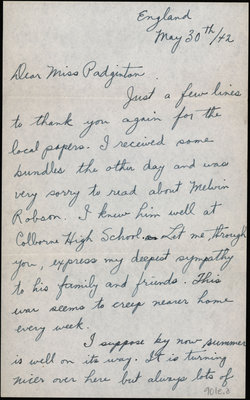 England
May 30th/42
Dear Miss Padginton.
Just a few lines
to thank you again for the
local papers. I received some
bundles the other day and was
very sorry to read about Melvin
Robson. I knew him well at
Colborne High School. Let me through
you, express my deepest sympathy
to his family and friends. This
war seems to creep nearer home
every week.
I suppose by now summer
is well on its way. It is turning
nicer over here but always lots of